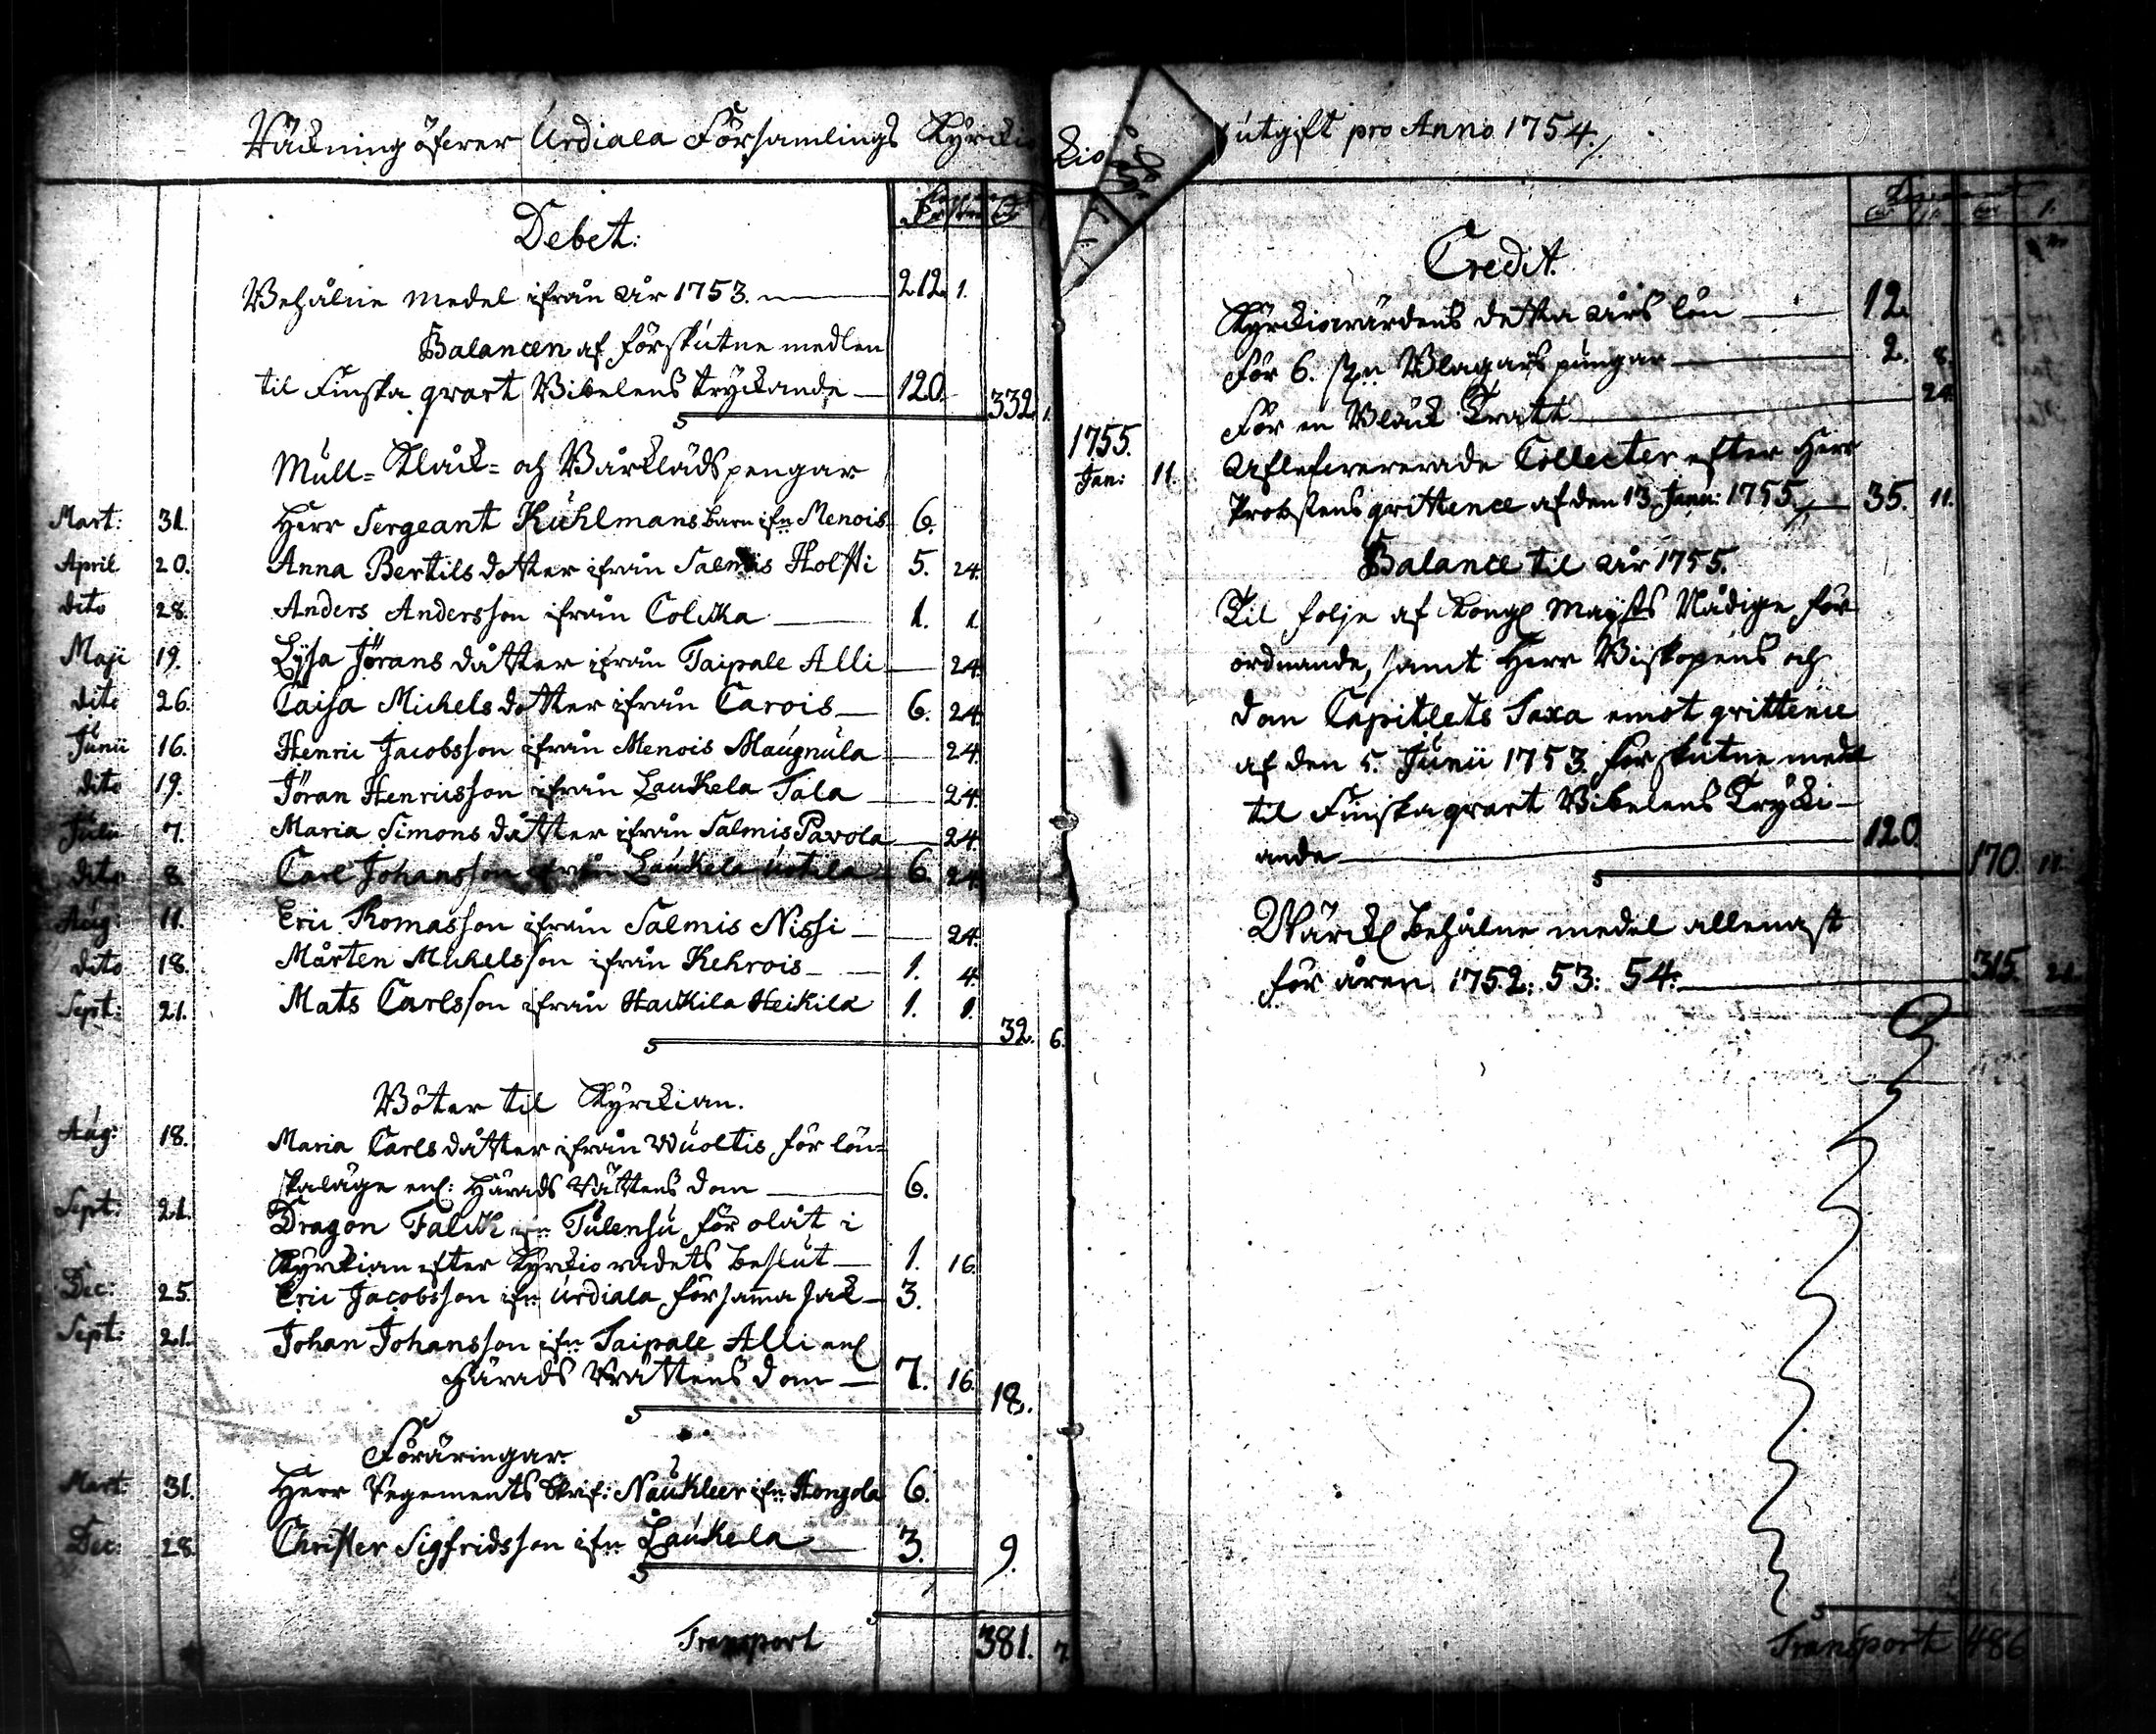 Räckning öfwer Urdiala Församlings Kyrckio
Debet.
Behålne medel ifrån år 1753. 212. 1.
Balancen af förskutne medlen
til Finska qvart Bibelens tryckande 120.
332. 1.
Mull- Klåck- och Bårklädspengar
Mart: 31. Herr Sergeant Kuhlmans barn ifn Menois 6.
April 20. Anna Bertils dotter ifrån Salmis Holsti 5. 24.
dito 28. Anders Andersson ifrån Colcka 1. 1.
Maji 19. Lysa Jörans dåtter ifrån Taipale Alli 24.
dito 26. Caisa Michels dotter ifrån Carois 6. 24.
Junii 16. Henric Jacobsson ifrån Menois Maugnula 24.
dito 19. Jöran Henricsson ifrån Laukela Tala 24.
Julii 7. Maria Simons dåtter ifrån Salmis Pavola 24.
dito 8. Carl Johansson ifrån Laukela Uotila 6. 24.
Aug: 11. Eric Thomasson ifrån Salmis Nissi 24.
dito 18. Mårten Michelsson ifrån Kehrois 1. 4.
Sept: 21. Mats Carlsson ifrån Hackila Heikilä 1. 1.
32. 6.
Böter til Kyrckian.
Aug: 18. Maria Carls dåtter ifrån Wuoltis för lön-
skaläge enl: Härads Rättens dom 6.
Sept: 21. Dragon Falck ifn Tulensu för olåt i
Kyrckian efter Kyrckio rådets beslut 1. 16.
Dec: 25. Eric Jacobsson ifn Urdiala för samma sak 3.
Sept: 21. Johan Johansson ifn Taipale Alli enl
Härads Rättens dom 7. 16.
18.
Föräringar.
Mart: 31. Herr Regements Skrif: Naukleer ifn Hongola 6.
Dec: 28. Christer Sigfridsson ifn Laukela 3.
9.
Transport 381. 7.
kio
utgift pro Anno 1754.
Credit.
Kyrckiowärdens detta års lön 12.
För 6. st:n Klagars pungar 2. 8.
För en Bläck Tratt 24.
1755.
Jan: 11. Aflefwererade Collecter efter Herr
Probstens qvittence af den 13. Janu: 1755. 35. 11.
Balance til år 1755.
Til folje af Kongl Mayts Nådige för
ordnande, samt Herr Biskopens och
Dom Capitlets Taxa emot qvittence
af den 5. Junii 1753. förskutne medel
til Finska qvart Bibelens Trycki-
ande 120.
170. 11.
Wärckl behålne medel allenast
för åren 1752: 53: 54: 315.
Transport 486